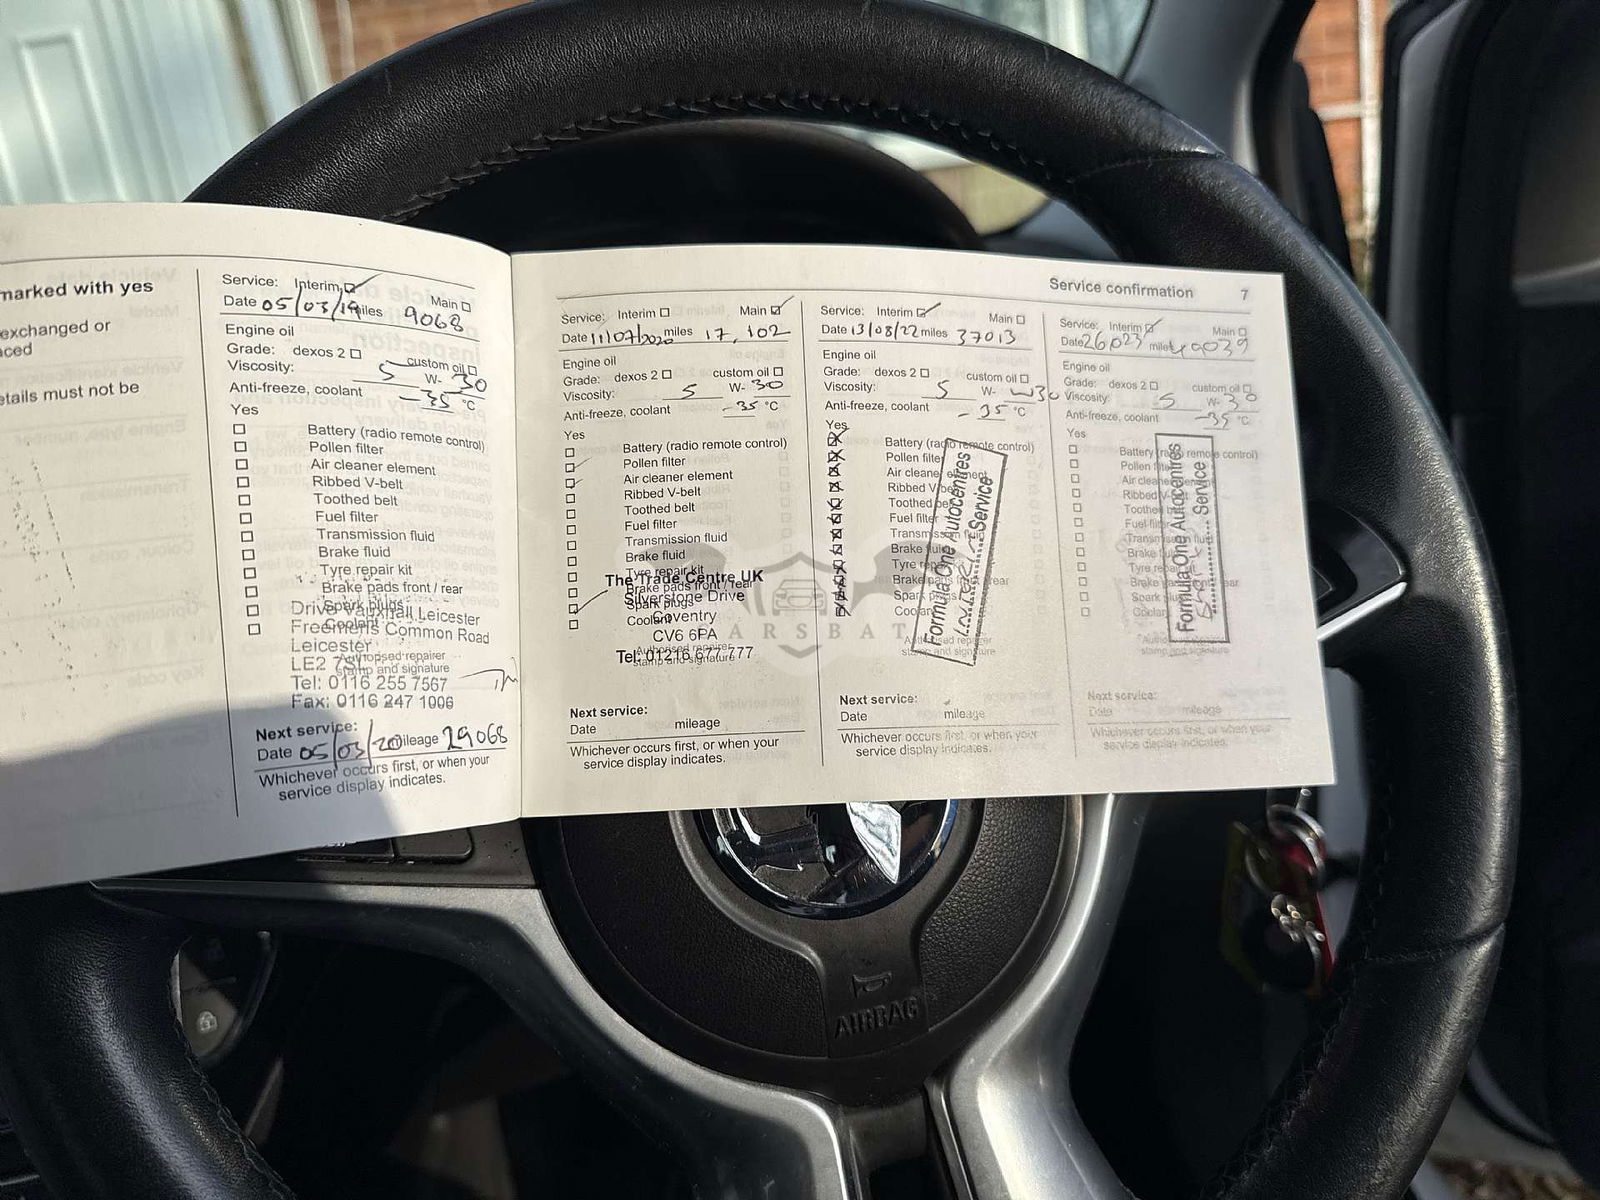 marked with yes
exchanged or
aced
etails must not be
Service: Interim Main
Date 05/03/19 miles 9068
Engine oil
Grade: dexos 2 custom oil
Viscosity: 5 W- 30
Anti-freeze, coolant -35 °C
Yes
Battery (radio remote control)
Pollen filter
Air cleaner element
Ribbed V-belt
Toothed belt
Fuel filter
Transmission fluid
Brake fluid
Tyre repair kit
Brake pads front / rear
Spark plugs
Coolant
Drive Vauxhall Leicester
Freemens Common Road
Leicester
LE2 7SL
Authorised repairer
stamp and signature
Tel: 0116 255 7567
Fax: 0116 247 1006
Next service:
Date 05/03/20 mileage 29068
Whichever occurs first, or when your
service display indicates.
Service confirmation 7
Service: Interim Main
Date 11/07/2020 miles 17,102
Engine oil
Grade: dexos 2 custom oil
Viscosity: 5 W- 30
Anti-freeze, coolant -35 °C
Yes
Battery (radio remote control)
Pollen filter
Air cleaner element
Ribbed V-belt
Toothed belt
Fuel filter
Transmission fluid
Brake fluid
Tyre repair kit
Brake pads front / rear
Spark plugs
Coolant
The Trade Centre UK
Silverstone Drive
Coventry
CV6 6PA
Authorised repairer
stamp and signature
Tel: 01216 677 777
Next service:
Date mileage
Whichever occurs first, or when your
service display indicates.
Service: Interim Main
Date 13/08/22 miles 37013
Engine oil
Grade: dexos 2 custom oil
Viscosity: 5 W- w30
Anti-freeze, coolant -35 °C
Yes
Battery (radio remote control)
Pollen filter
Air cleaner element
Ribbed V-belt
Toothed belt
Fuel filter
Transmission fluid
Brake fluid
Tyre repair kit
Brake pads front / rear
Spark plugs
Coolant
Formula One Autocentres
Service
Authorised repairer
stamp and signature
Next service:
Date mileage
Whichever occurs first, or when your
service display indicates.
Service: Interim Main
Date miles
Engine oil
Grade: dexos 2 custom oil
Viscosity: 5 W- 30
Anti-freeze, coolant -35 °C
Yes
Battery (radio remote control)
Pollen filter
Air cleaner element
Ribbed V-belt
Toothed belt
Fuel filter
Transmission fluid
Brake fluid
Tyre repair kit
Brake pads front / rear
Spark plugs
Coolant
Formula One Autocentres
Service
Authorised repairer
stamp and signature
Next service:
Date mileage
Whichever occurs first, or when your
service display indicates.
CARSBAT
AIRBAG